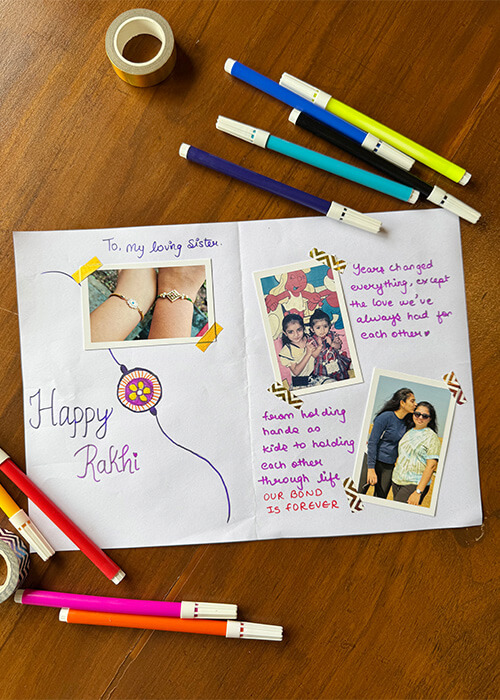 To, my loving Sister.
Happy
Rakhi
Years changed
everything, except
the love we've
always had for
each other
from holding
hands as
kids to holding
each other
through life
OUR BOND
IS FOREVER